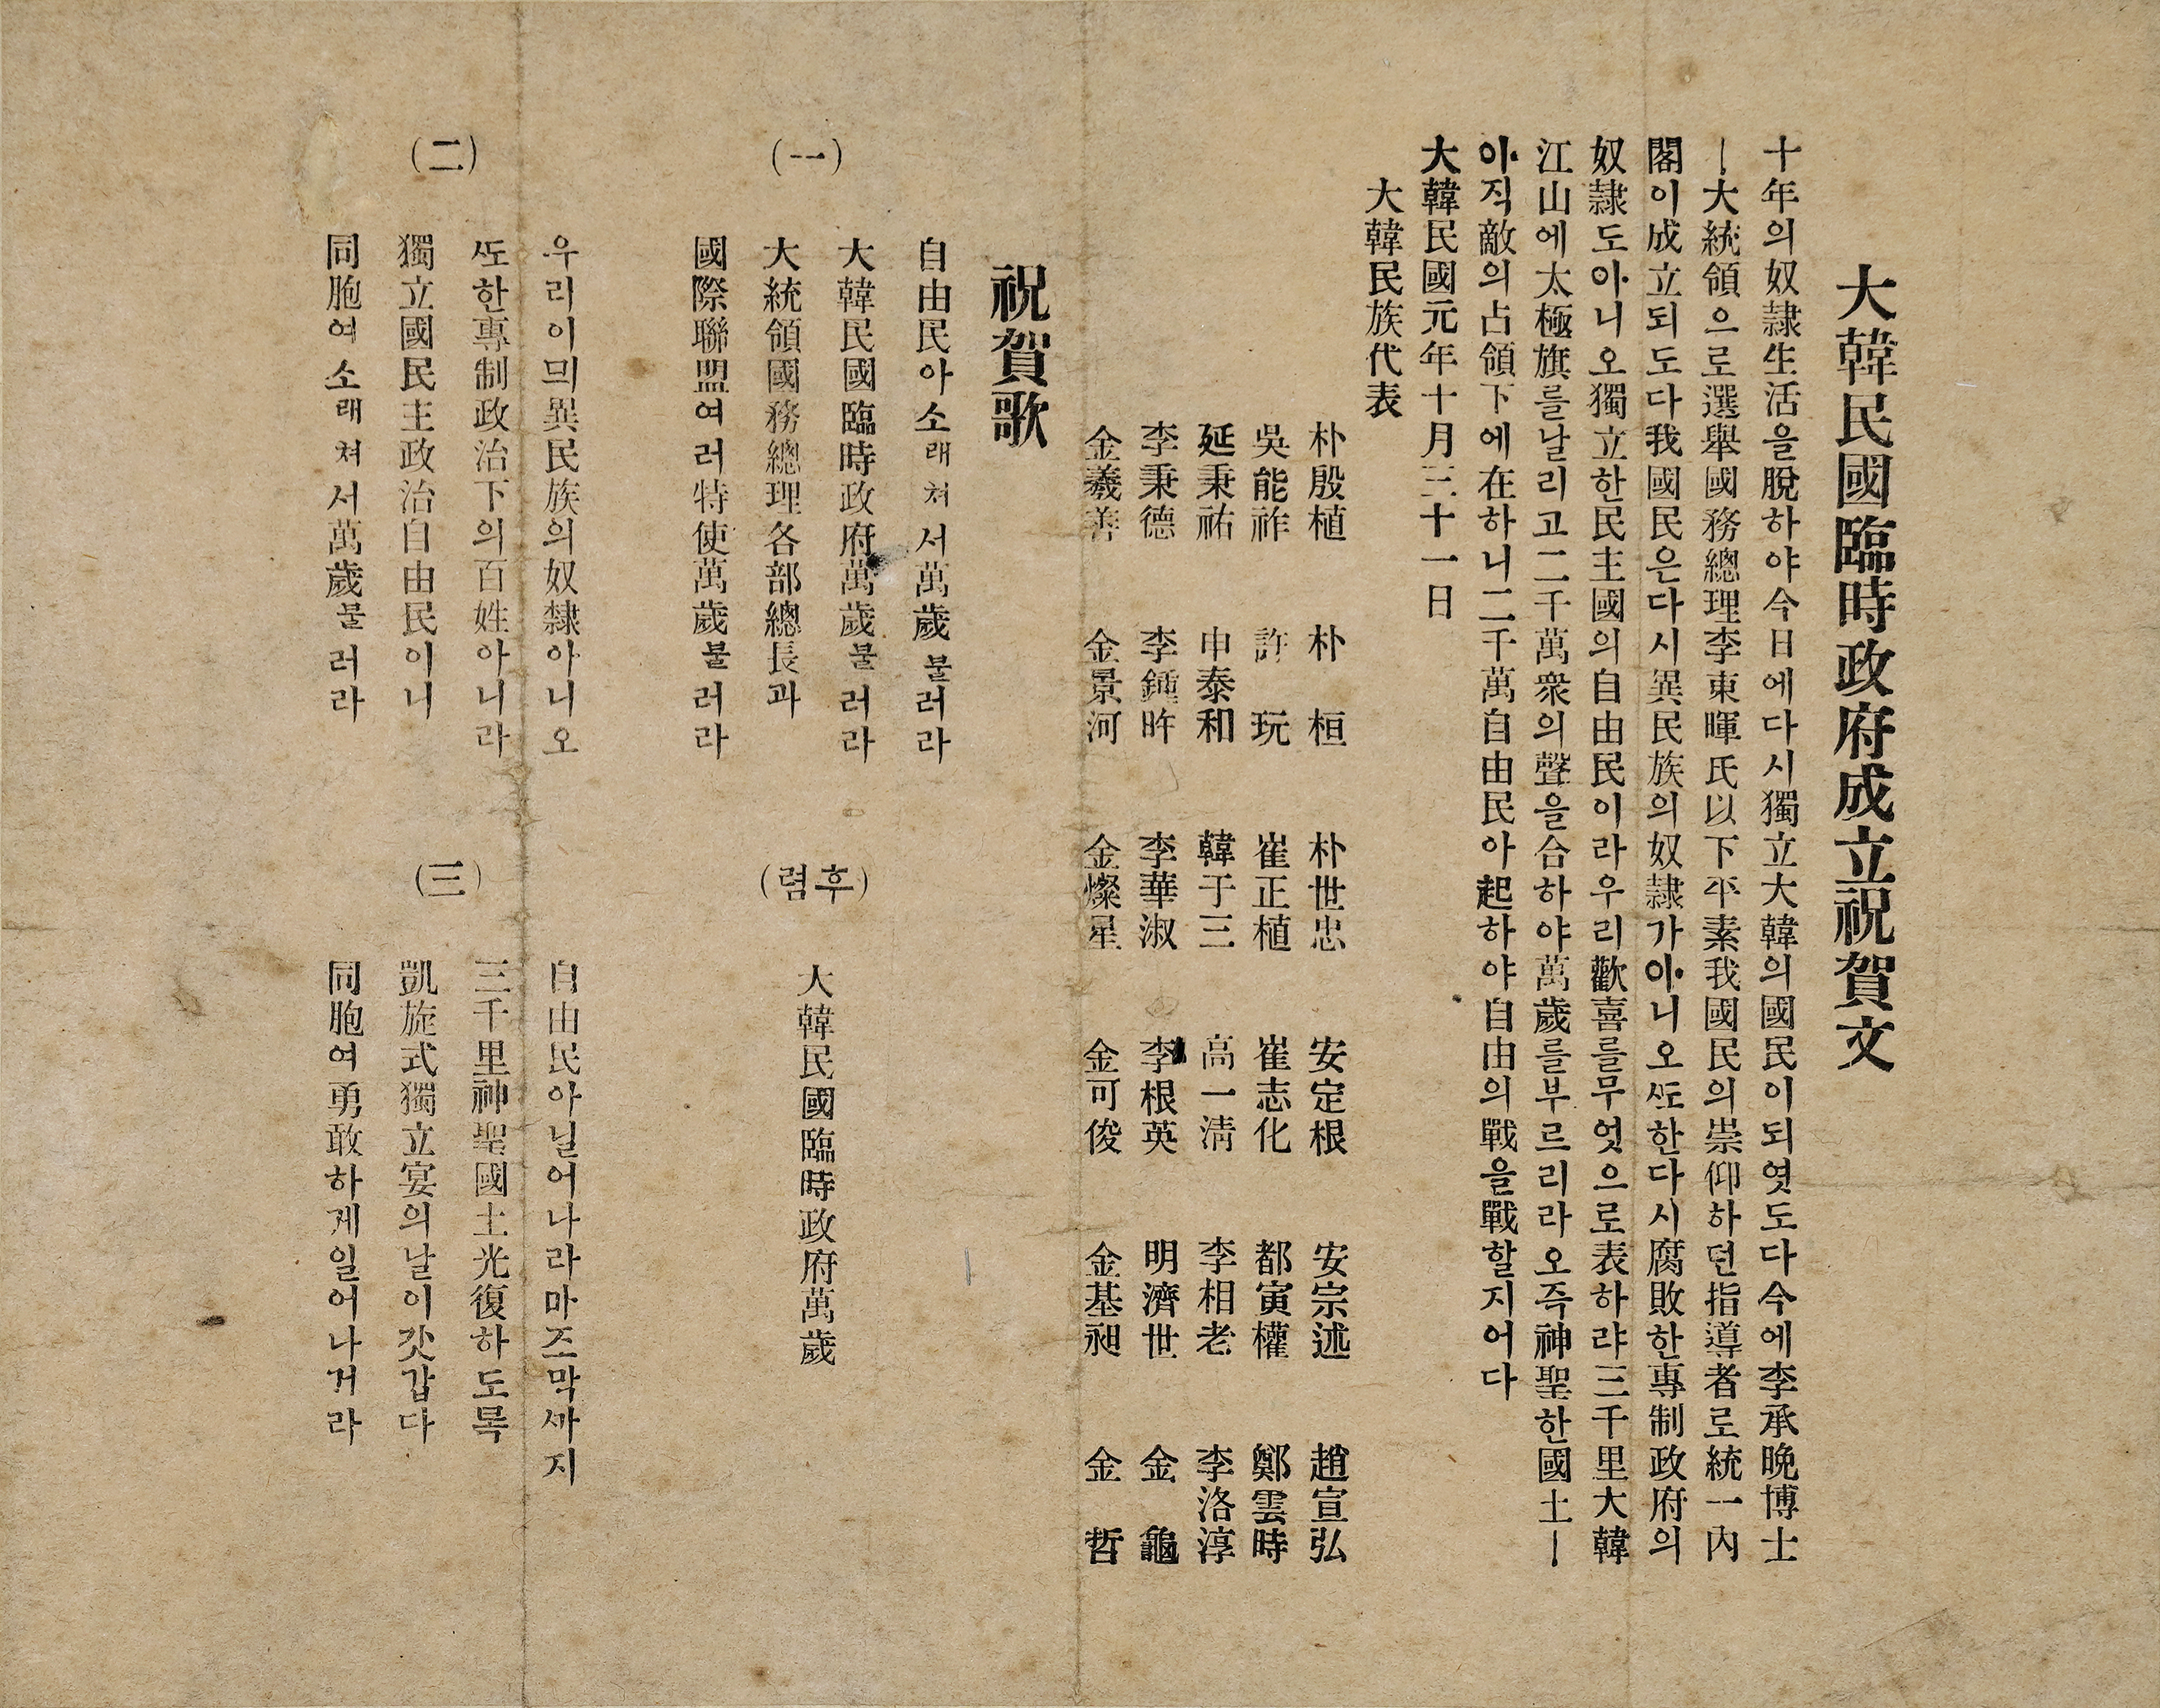 大韓民國臨時政府成立祝賀文
十年의奴隷生活을脫하야今日에다시獨立大韓의國民이되엿도다今에李承晩博士
ㅣ大統領으로選擧國務總理李東暉氏以下平素我國民의崇仰하던指導者로統一內
閣이成立되도다我國民은다시異民族의奴隷가아니오ᄯᅩ한다시腐敗한專制政府의
奴隷도아니오獨立한民主國의自由民이라우리歡喜를무엇으로表하랴三千里大韓
江山에太極旗를날리고二千萬衆의聲을合하야萬歲를부르리라오즉神聖한國土ㅣ
아직敵의占領下에在하니二千萬自由民아起하야自由의戰을戰할지어다
大韓民國元年十月三十一日
大韓民族代表
朴殷植 朴 桓 朴世忠 安定根 安宗述 趙宣弘
吳能祚 許 玩 崔正植 崔志化 都寅權 鄭雲時
延秉祐 申泰和 韓于三 高一淸 李相老 李洛淳
李秉德 李鍾旿 李華淑 李根英 明濟世 金 龜
金羲善 金景河 金燦星 金可俊 金基昶 金 哲
祝賀歌
(一)
自由民아소래쳐서萬歲불러라
大韓民國臨時政府萬歲불러라
大統領國務總理各部總長과
國際聯盟여러特使萬歲불러라
(후렴)
大韓民國臨時政府萬歲
(二)
우리이믜異民族의奴隸아니오
ᄯᅩ한專制政治下의百姓아니라
獨立國民主政治自由民이니
同胞여소래쳐서萬歲불러라
(三)
自由民아닐어나라마즈막ᄭᅡ지
三千里神聖國土光復하도록
凱旋式獨立宴의날이갓갑다
同胞여勇敢하게일어나거라